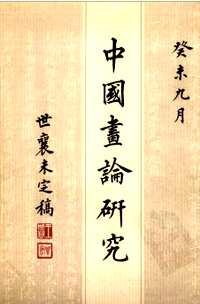 癸未九月
中國畫論研究
世襄未定稿